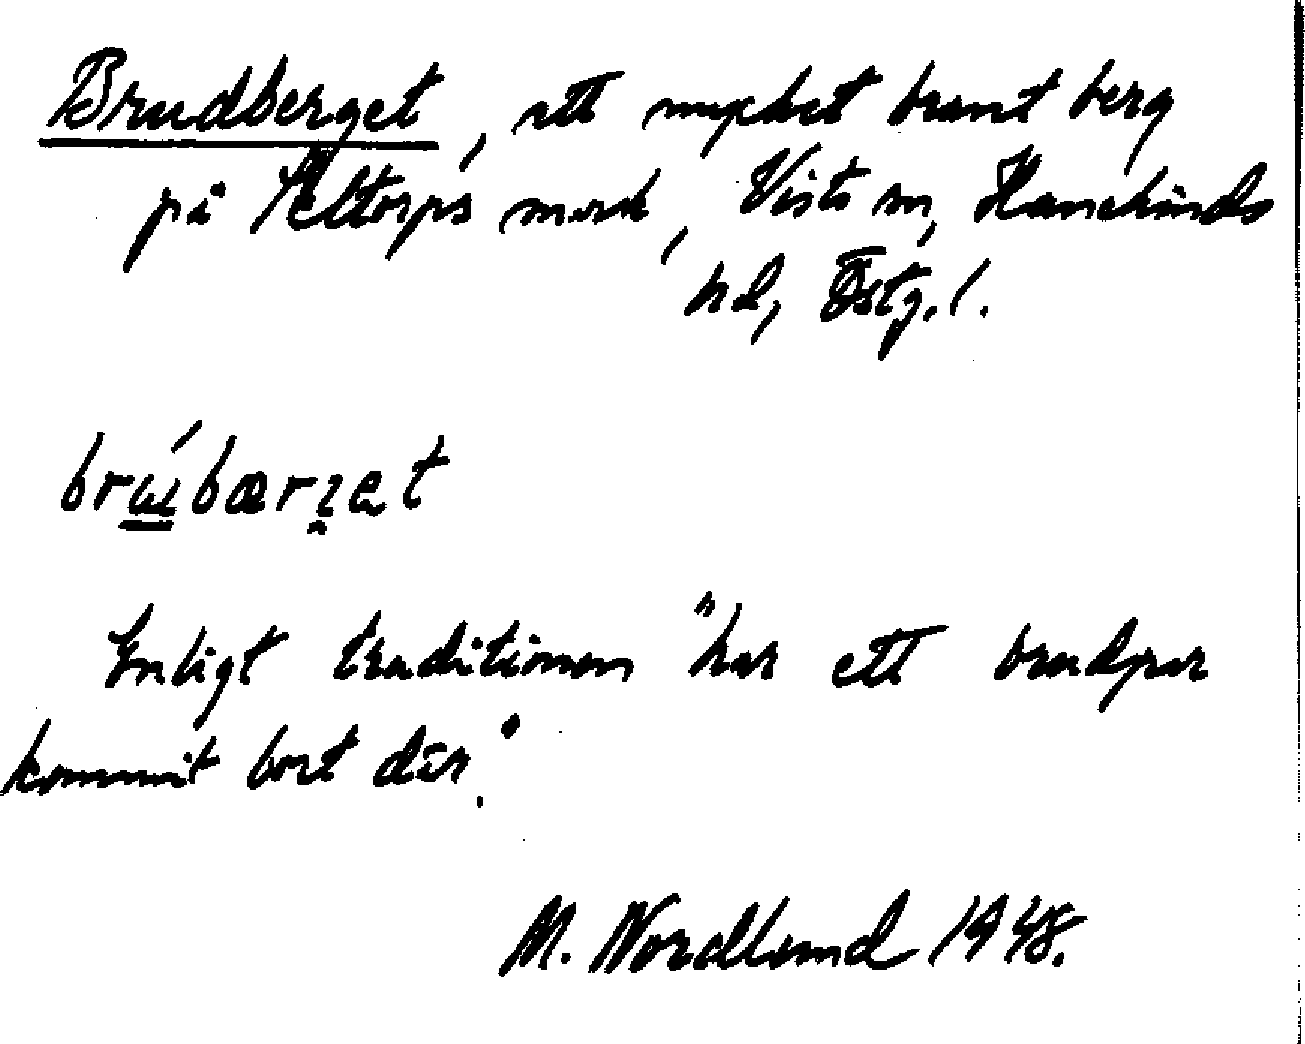 Brudberget, ett mycket brant berg
på Ältorps mark, Vists sn, Hanekinds
hd, Östg. l.
brɯ́bærʒet
Enligt traditionen "har ett brudpar
kommit bort där."
M. Nordlund 1948.